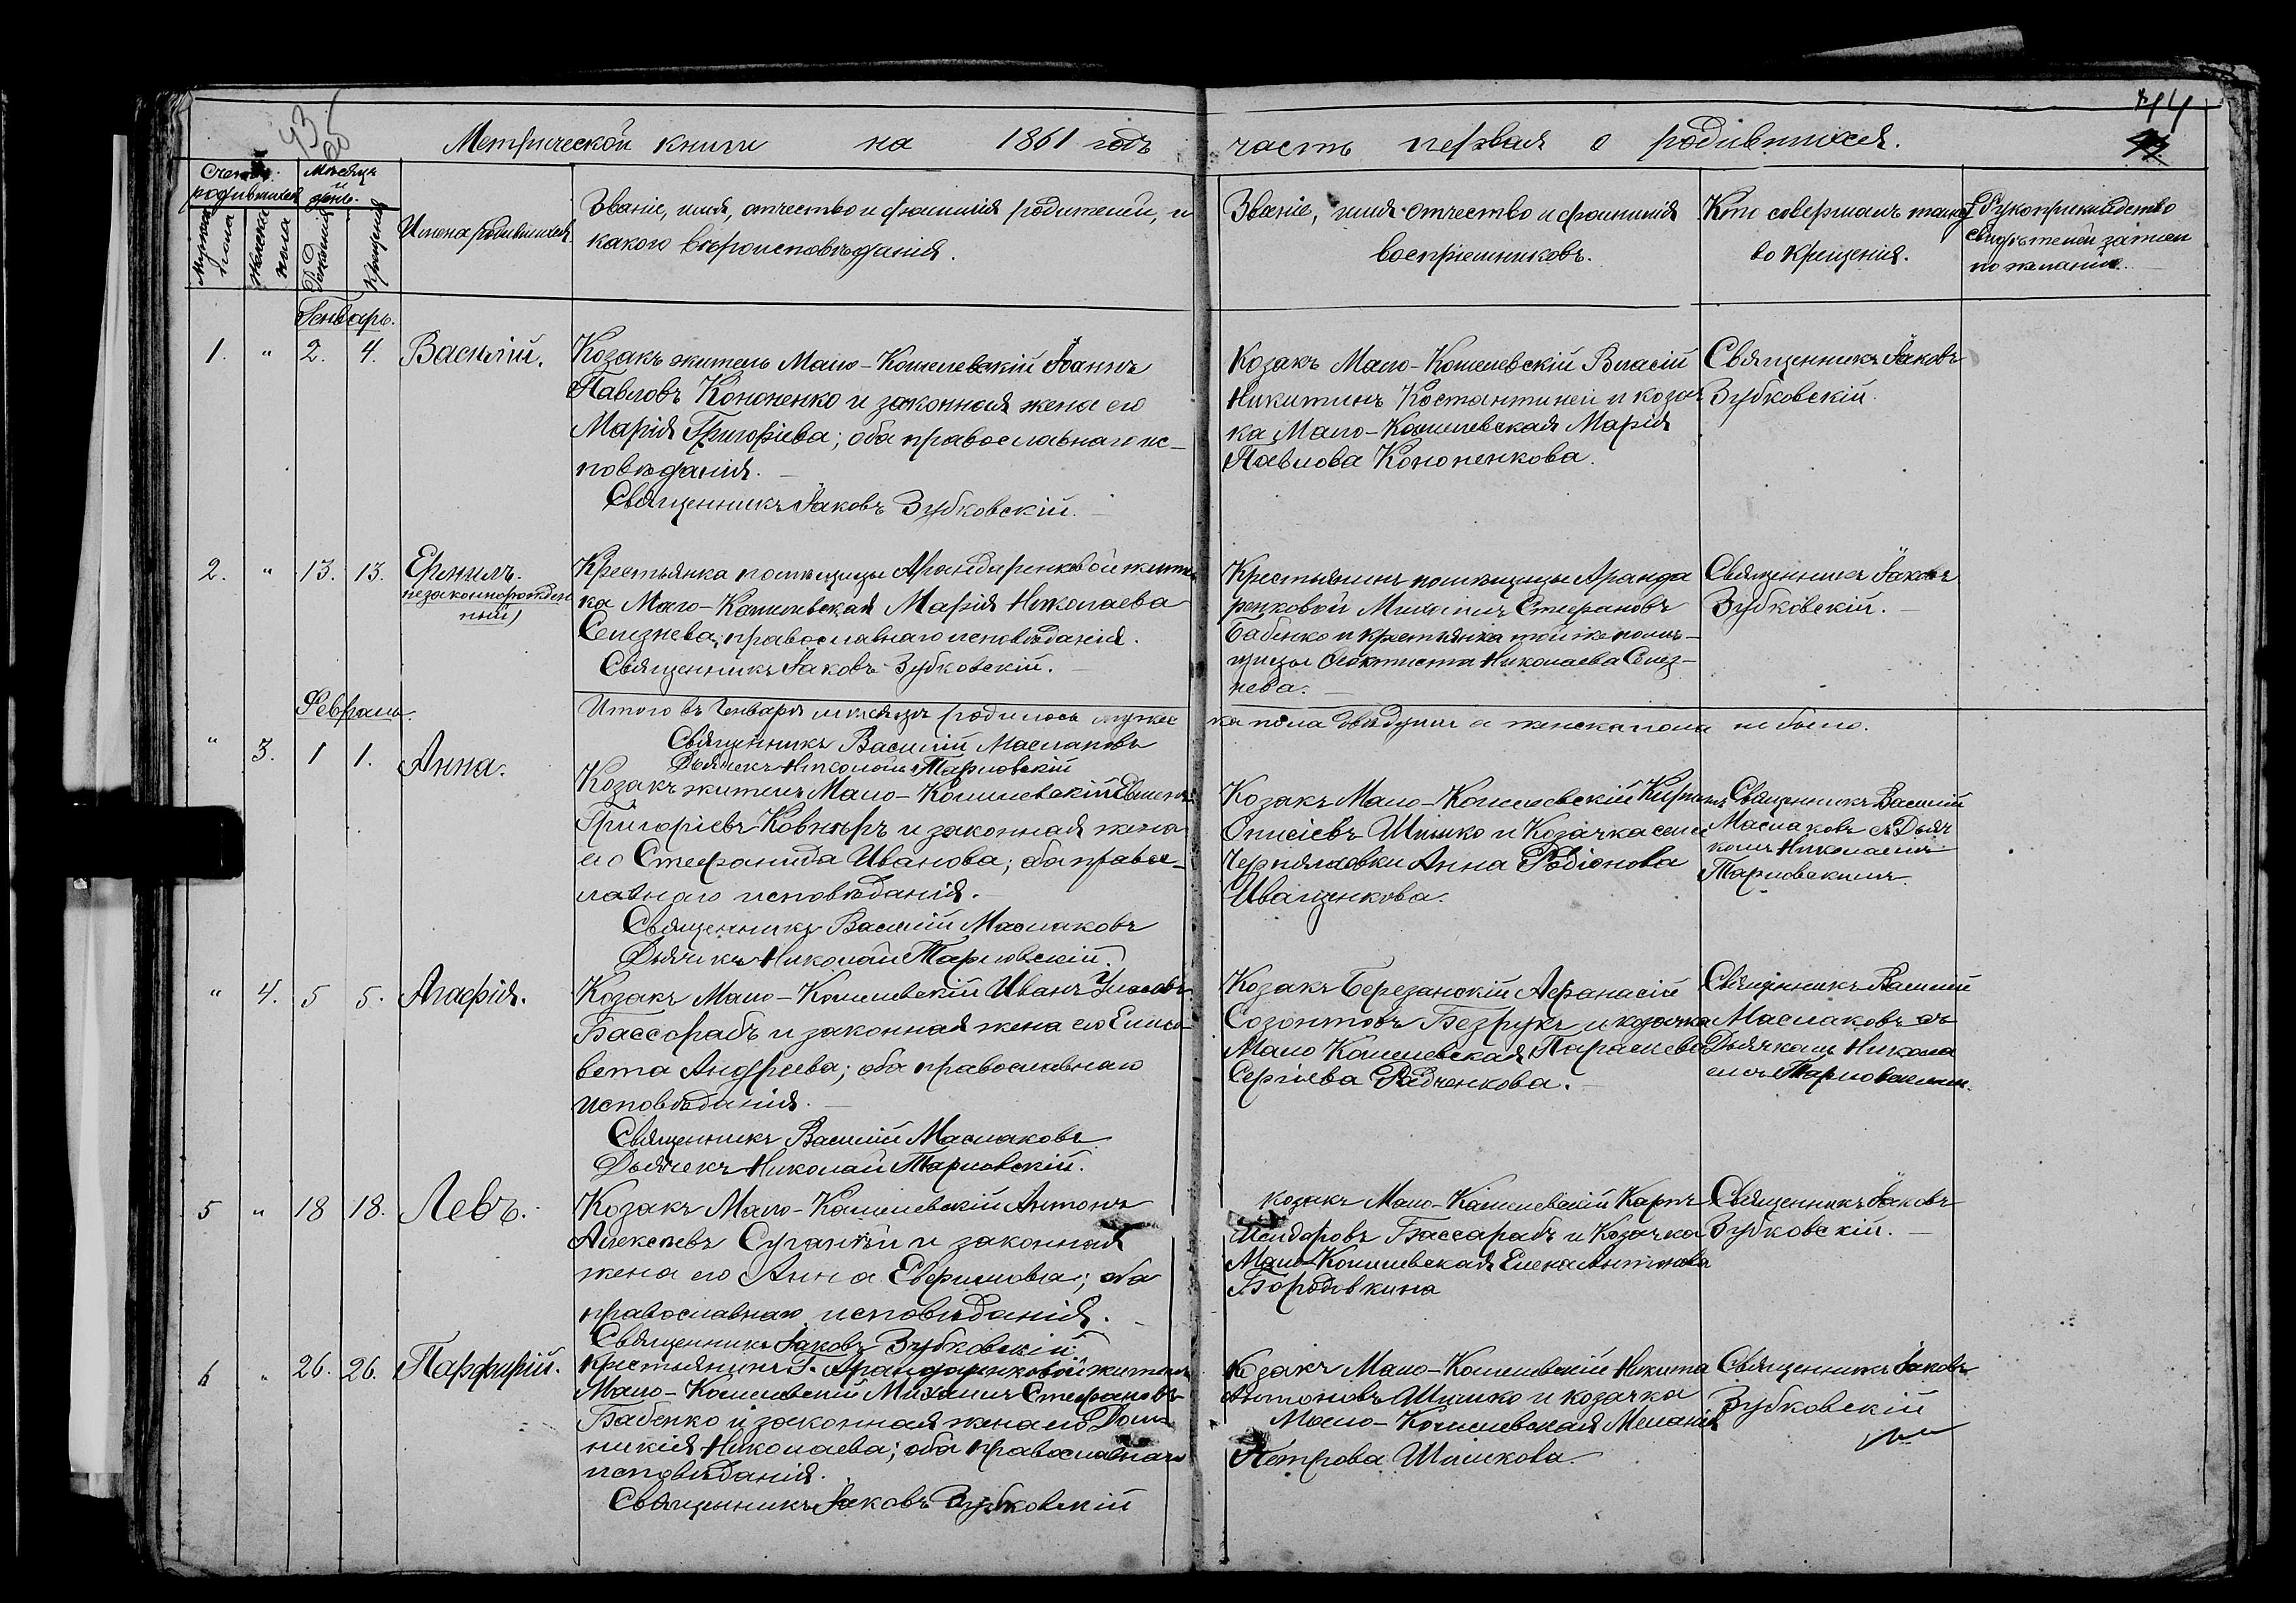 44
Метрической книги на 1861 годъ часть первая о родившихся.
Счетъ родившихся
Мужеска пола
Женска пола
Месяцъ и день.
Рожденія
Крещенія
Имена родившихся
Званіе, имя, отчество и фамилія родителей, и
какого вѣроисповѣданія.
Званіе, имя отчество и фамилія
воспріемниковъ.
Кто совершалъ таинст
во крещенія.
Рукоприкладство
свидѣтелей записи
по желанію.
Генварь.
1. " 2. 4. Василій.
Козакъ житель Мало-Кошелевскій Іоаннъ
Павловъ Кононенко и законная жена его
Марія Григоріева; оба православнаго ис-
повѣданія.
Священникъ Іаковъ Зубковскій.
Козакъ Мало-Кошелевскій Власій
Никитинъ Костантиней и козач
ка Мало-Кошелевская Марія
Павлова Кононенкова.
Священникъ Іаковъ
Зубковскій.
2. " 13. 13. Ермилъ.
незаконнорожден
ный)
Крестьянка помѣщицы Арандаренковой житель
ка Мало-Кошелевская Марія Николаева
Селезнева, православнаго исповѣданія.
Священникъ Іаковъ Зубковскій.
Крестьянинъ помѣщицы Аранда
ренковой Михаилъ Стефановъ
Бабенко и крестьянка той же помѣ-
щицы Феоктиста Николаева Селез-
нева.
Священникъ Іаковъ
Зубковскій.
Итого въ Генварѣ месяцѣ родилось мужес ка пола двѣ души а женска пола не было.
Священникъ Василій Маслаковъ
Дьячекъ Николай Тарновскій
Февраль.
" 3. 1 1. Анна.
Козакъ житель Мало-Кошелевскій Евмен
Григоріевъ Ковнѣръ и законная жена
его Стефанида Иванова; оба правос-
лавнаго исповѣданія.
Священникъ Василій Маслаковъ
Дьячекъ Николай Тарновскій.
Козакъ Мало-Кошелевскій Кирилъ
Онисіевъ Шишко и Козачка села
Черняховки Анна Родіонова
Иващенкова.
Священникъ Василій
Маслаковъ съ Дьяч
комъ Николаемъ
Тарновскимъ.
" 4. 5 5. Агафія.
Козакъ Мало-Кошелевскій Иванъ
Бассорабъ и законная жена его Елиса
вета Андреева; оба православнаго
исповѣданія.
Священникъ Василій Маслаковъ
Дьячекъ Николай Тарновскій.
Козакъ Березанскій Афанасій
Созонтовъ Безрукъ и козачка
Мало Кошелевская Параскева
Сергіева Радченкова.
Священникъ Василій
Маслаковъ съ
Дьячкомъ Никола
емъ Тарновскимъ.
5 " 18 18. Левъ.
Козакъ Мало-Кошелевскій Антонъ
Алексѣевъ и законная
жена его Анна Ефимова; оба
православнаго исповѣданія.
Священникъ Іаковъ Зубковскій
козакъ Мало-Кошелевскій Карпъ
Исидоровъ Бассарабъ и Козачка
Мало-Кошелевская Елена Антонова
Бородовкина
Священникъ Іаковъ
Зубковскій.
6 " 26. 26. Парфирій.
Крестьянинъ Г. Арандаренковой житель
Мало-Кошелевскій Михаилъ Стефановъ
Бабенко и законная жена его Дом
никія Николаева; оба православнаго
исповѣданія.
Священникъ Іаковъ Зубковскій
Козакъ Мало-Кошелевскій Никита
Антоновъ Шишко и козачка
Мало-Кошелевская Меланія
Петрова Шишкова.
Священникъ Іаковъ
Зубковскій